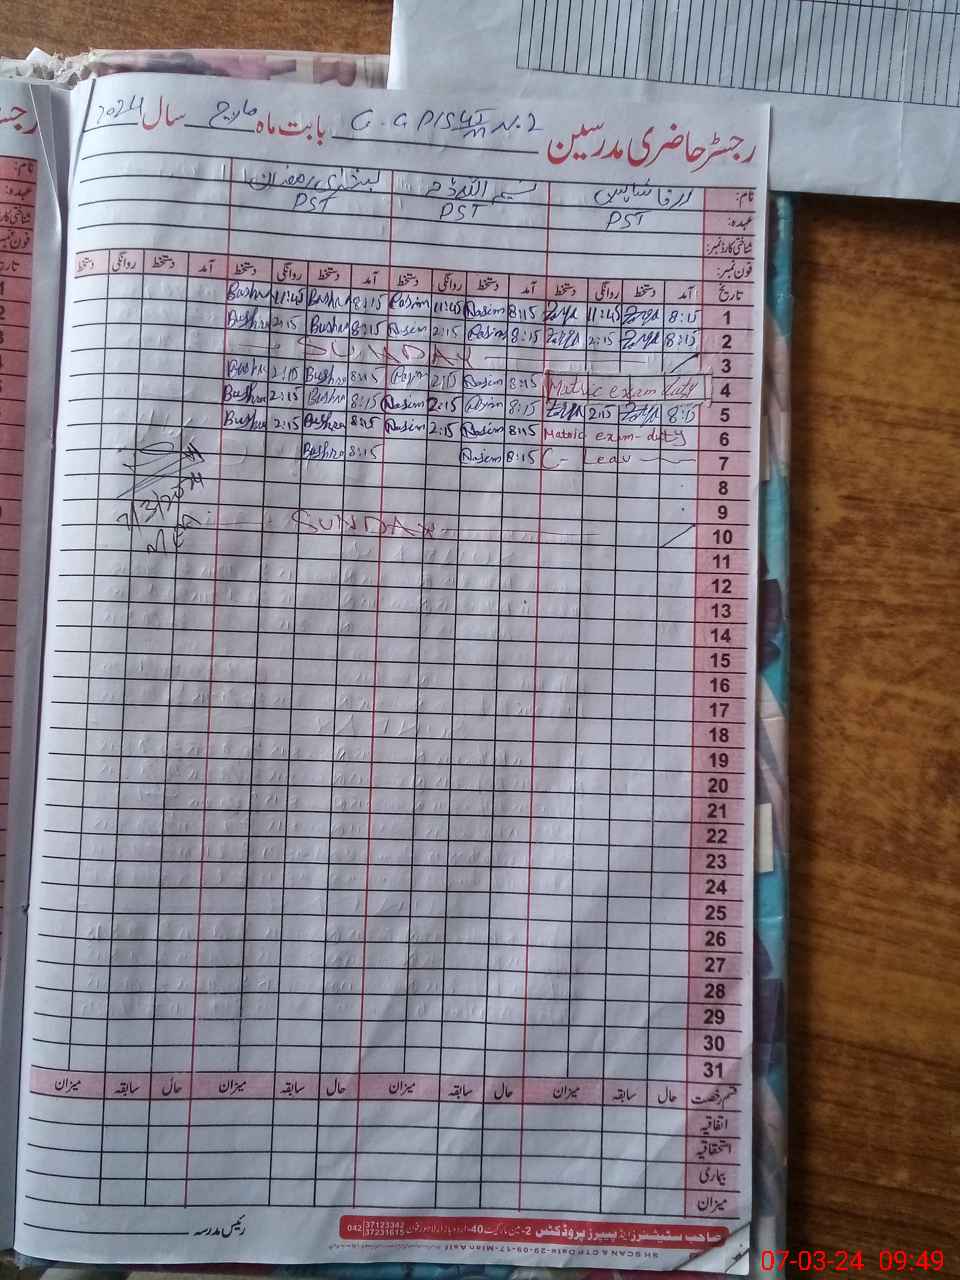 رجسٹر حاضری مدرسین G.G P/S N.2 بابت ماہ مارچ سال 2024
نام:
عہدہ: PST PST PST
شناختی کارڈ نمبر:
فون نمبر:
تاریخ آمد دستخط روانگی دستخط آمد دستخط روانگی دستخط آمد دستخط روانگی دستخط آمد دستخط روانگی دستخط
1 8:15 11:45 8:15 Nasim 11:45 Nasim 8:15 Bushra 11:45 Bushra
2 8:15 2:15 8:15 Nasim 2:15 Nasim 8:15 Bushra 2:15 Bushra
3 SUNDAY
4 Matric exam duty 8:15 Nasim 2:15 Nasim 8:15 Bushra 2:15 Bushra
5 8:15 2:15 8:15 Nasim 2:15 Nasim 8:15 Bushra 2:15 Bushra
6 Matric exam-duty 8:15 Nasim 2:15 Nasim 8:15 Bushra 2:15 Bushra
7 C- Leav 8:15 Nasim 8:15 Bushra
8
9
7/3/2024
10 SUNDAY
MEA
11
12
13
14
15
16
17
18
19
20
21
22
23
24
25
26
27
28
29
30
31
قسم رخصت حال سابقہ میزان حال سابقہ میزان حال سابقہ میزان حال سابقہ میزان
اتفاقیہ
استحقاقیہ
بیماری
میزان
رئیس مدرسہ
صاحب سٹیشنرز اینڈ پیپرز پروڈکٹس 2-مین مارکیٹ 40-اردو بازار لاہور فون 042 37123342 37231615
07-03-24 09:49